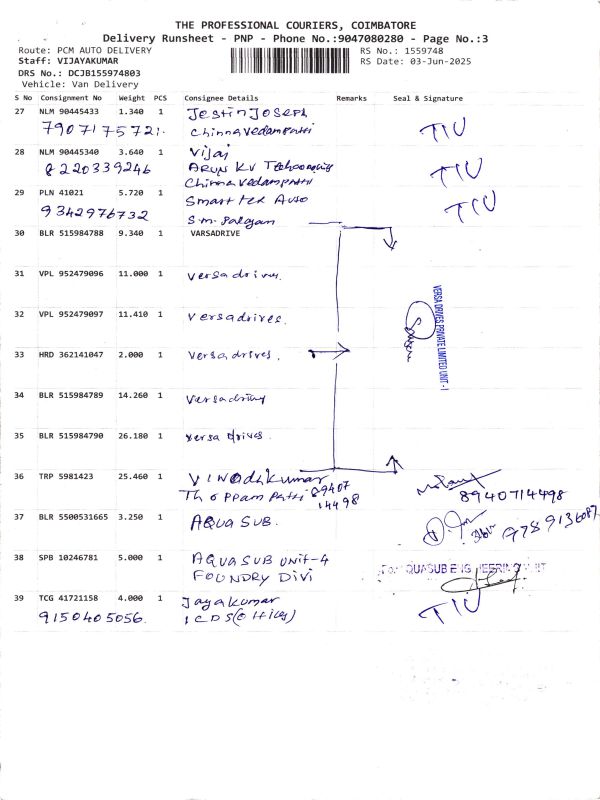 THE PROFESSIONAL COURIERS, COIMBATORE
Delivery Runsheet - PNP - Phone No.:9047080280 - Page No.:3
Route: PCM AUTO DELIVERY
RS No.: 1559748
Staff: VIJAYAKUMAR
RS Date: 03-Jun-2025
DRS No.: DCJB155974803
Vehicle: Van Delivery
S No Consignment No Weight PCS Consignee Details Remarks Seal & Signature
27 NLM 90445433 1.340 1 Jestin Joseph
7907175721. Chinnavedampatti TIU
28 NLM 90445340 3.640 1 Vijai
8220339246 ARUN KV TIU
Chinnavedampatti
29 PLN 41021 5.720 1 Smart tek Auto TIU
9342976732 S.m. Palayam
30 BLR 515984788 9.340 1 VARSADRIVE
31 VPL 952479096 11.000 1 Versa drives.
32 VPL 952479097 11.410 1 Versadrives.
VERSA DRIVES PRIVATE LIMITED UNIT - I
33 HRD 362141047 2.000 1 Versa drives.
34 BLR 515984789 14.260 1 Versadrives
35 BLR 515984790 26.180 1 Versa drives.
36 TRP 5981423 25.460 1 VINOdhkumar
Thoppam Patti 89407 14498 8940714498
37 BLR 5500531665 3.250 1 AQUA SUB. 9789136087
38 SPB 10246781 5.000 1 AQUASUB UNIT-4
FOUNDRY DIVI
For AQUASUB ENGINEERING UNIT
39 TCG 41721158 4.000 1 Jayakumar TIU
9150405056. ICDS (Office)